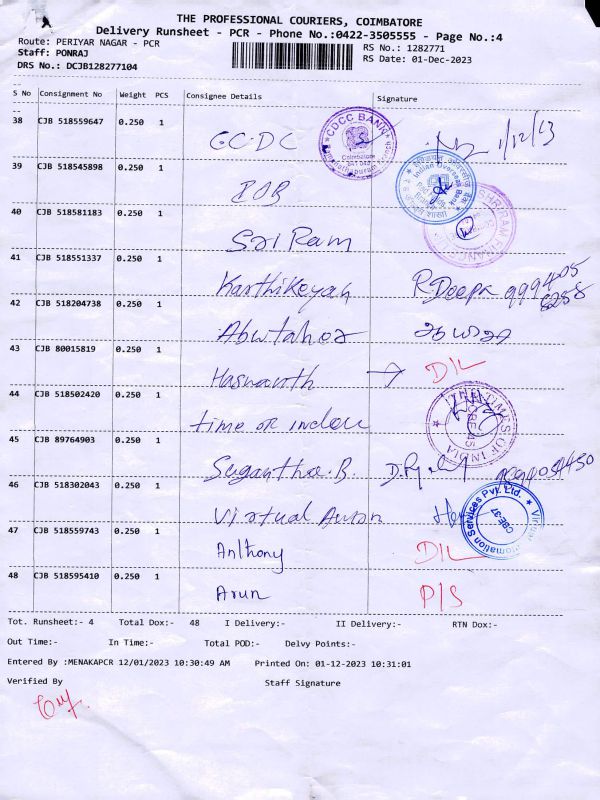 THE PROFESSIONAL COURIERS, COIMBATORE
Delivery Runsheet - PCR - Phone No.:0422-3505555 - Page No.:4
Route: PERIYAR NAGAR - PCR
RS No.: 1282771
Staff: PONRAJ
RS Date: 01-Dec-2023
DRS No.: DCJB128277104
S No Consignment No Weight PCS Consignee Details Signature
38 CJB 518559647 0.250 1 CCDC 1/12/23
CDCC BANK
Coimbatore
39 CJB 518545898 0.250 1 IOB
Indian Overseas Bank
40 CJB 518581183 0.250 1 Sri Ram
SHRIRAM FINANCE
41 CJB 518551337 0.250 1 Karthikeyan R.Deepa 999405 8288
42 CJB 518204738 0.250 1 Abutaher
43 CJB 80015819 0.250 1 Haswanth → D/L
44 CJB 518502420 0.250 1 time of index
TIMES OF INDIA
CBE-45
45 CJB 89764903 0.250 1 Sugantha.B.
46 CJB 518302043 0.250 1 Virtual Autom
Virtual Automation Services Pvt. Ltd.
CBE-37
47 CJB 518559743 0.250 1 Anthony D/L
48 CJB 518595410 0.250 1 Arun P/S
Tot. Runsheet:- 4 Total Dox:- 48 I Delivery:- II Delivery:- RTN Dox:-
Out Time:- In Time:- Total POD:- Delvy Points:-
Entered By :MENAKAPCR 12/01/2023 10:30:49 AM Printed On: 01-12-2023 10:31:01
Verified By Staff Signature